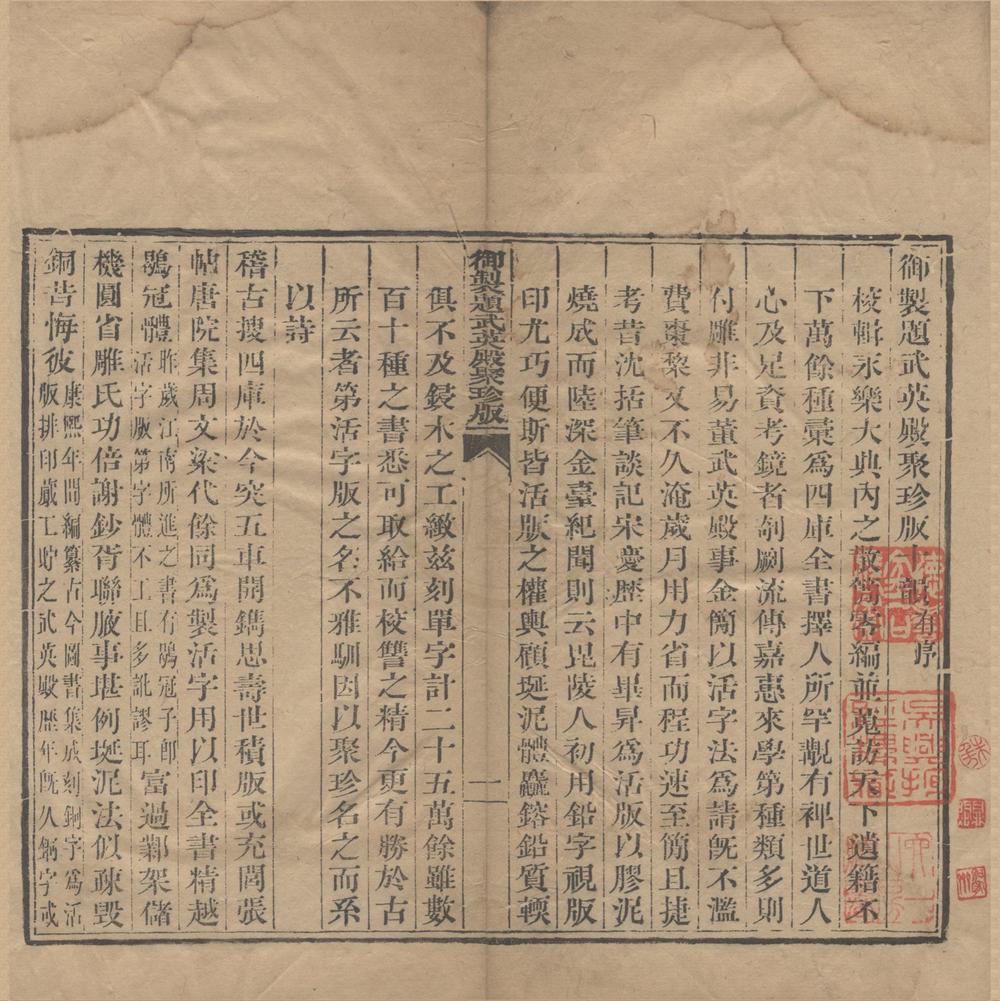 御製題武英殿聚珍版十韻有序
校輯永樂大典內之散簡零編並蒐訪天下遺籍不
下萬餘種彙爲四庫全書擇人所罕覯有裨世道人
心及足資考鏡者剞劂流傳嘉惠來學第種類多則
付雕非易董武英殿事金簡以活字法爲請旣不濫
費棗黎又不久淹歲月用力省而程功速至簡且捷
考昔沈括筆談記宋慶歷中有畢昇爲活版以膠泥
燒成而陸深金臺紀聞則云毘陵人初用鉛字視版
印尤巧便斯皆活版之權輿顧埏泥體麤鎔鉛質輭
御製題武英殿聚珍版
一
俱不及鋟木之工緻兹刻單字計二十五萬餘雖數
百十種之書悉可取給而校讐之精今更有勝於古
所云者第活字版之名不雅馴因以聚珍名之而系
以詩
稽古搜四庫於今突五車開鐫思壽世積版或充閭張
帖唐院集周文梁代餘同爲製活字用以印全書精越
鶡冠體昨歲江南所進之書有鶡冠子卽活字版第字體不工且多訛謬耳富過鄴架儲
機圓省雕氏功倍謝鈔胥聯腋事堪例埏泥法似疎毀
銅昔悔彼康熙年間編纂古今圖書集成刻銅字爲活版排印蕆工貯之武英殿歷年旣久銅字或